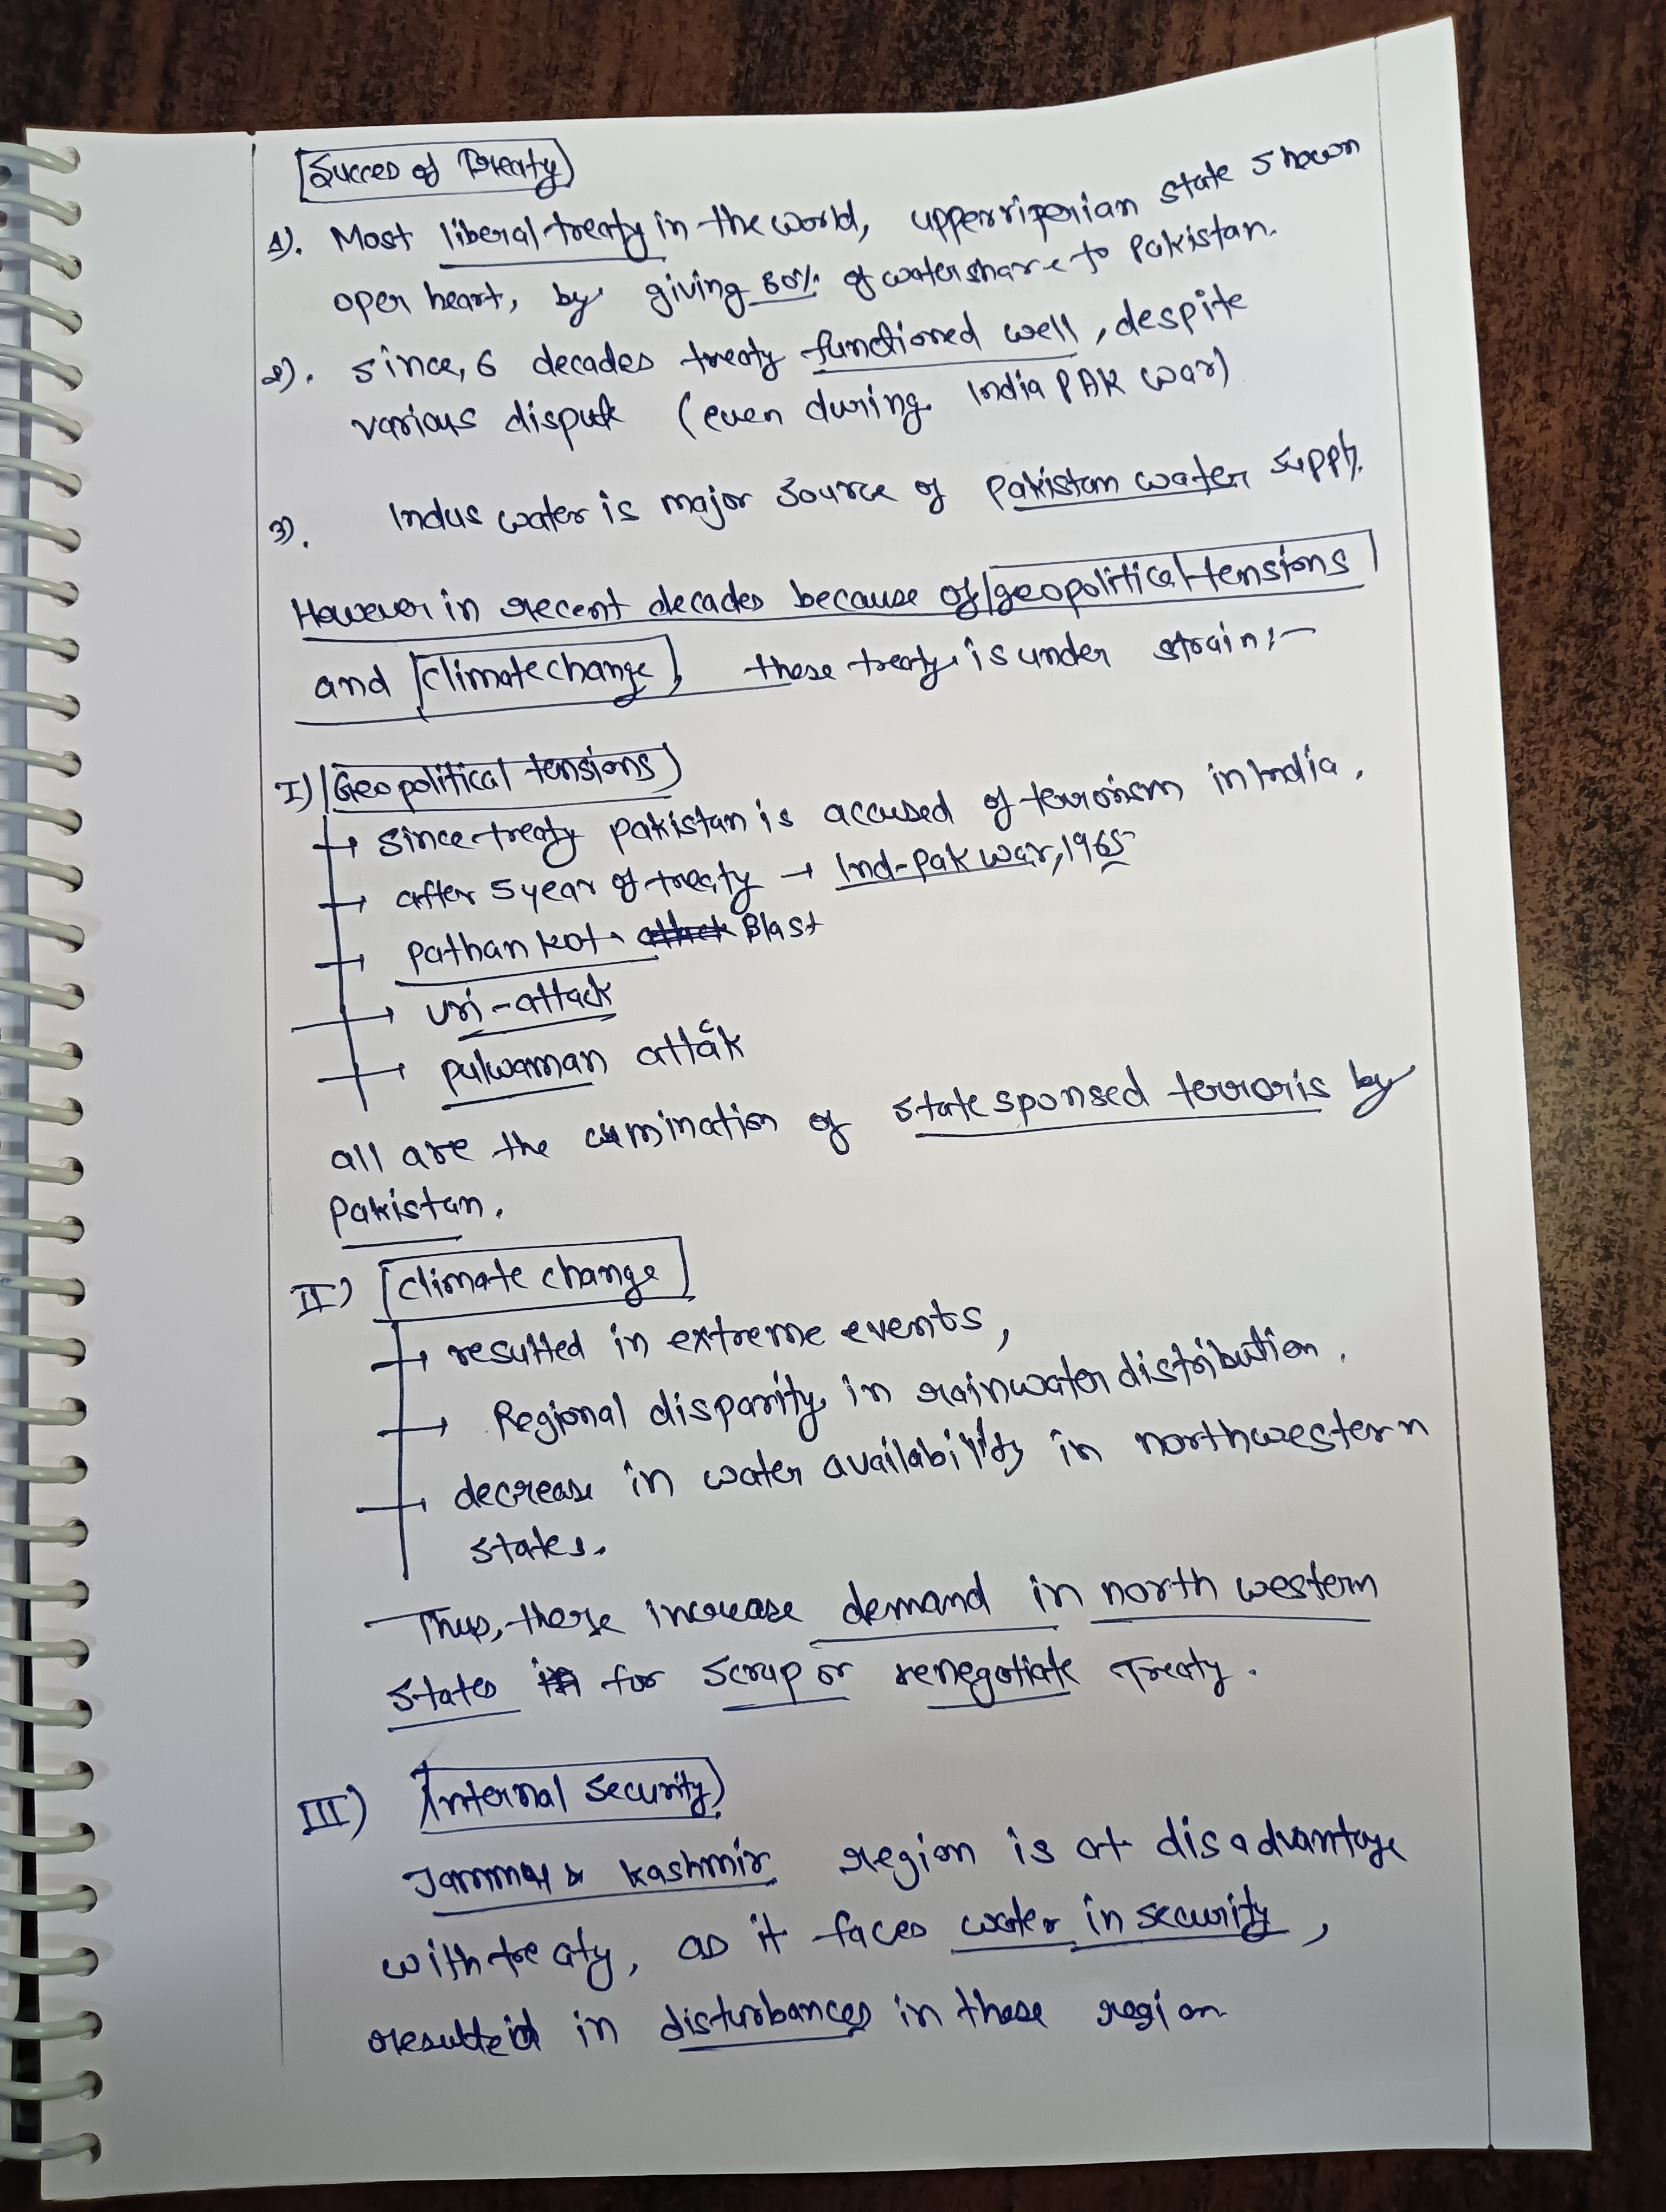 Succes of Treaty
1). Most liberal treaty in the world, upper riperian state shown
open heart, by giving 80% of water share to Pakistan.
2). Since, 6 decades treaty functioned well, despite
various dispute (even during India PAK war)
3). Indus water is major source of Pakistan water supply.
However in recent decades because of geopolitical tensions
and climate change, these treaty is under strain:-
I) Geopolitical tensions
→ since treaty Pakistan is accused of terrorism in India.
→ after 5 year of treaty → Ind-Pak war, 1965
→ Pathankot Blast
→ uri-attack
→ pulwaman attack
all are the cumination of state sponsed terroris by
Pakistan.
II) climate change
→ resulted in extreme events,
→ Regional disparity in rainwater distribution.
→ decrease in water availability in northwestern
states.
Thus, these increase demand in north western
states for scrap or renegotiate Treaty.
III) Internal security
Jammu & Kashmir region is at disadvantage
with treaty, as it faces water insecurity,
resulted in disturbances in these region